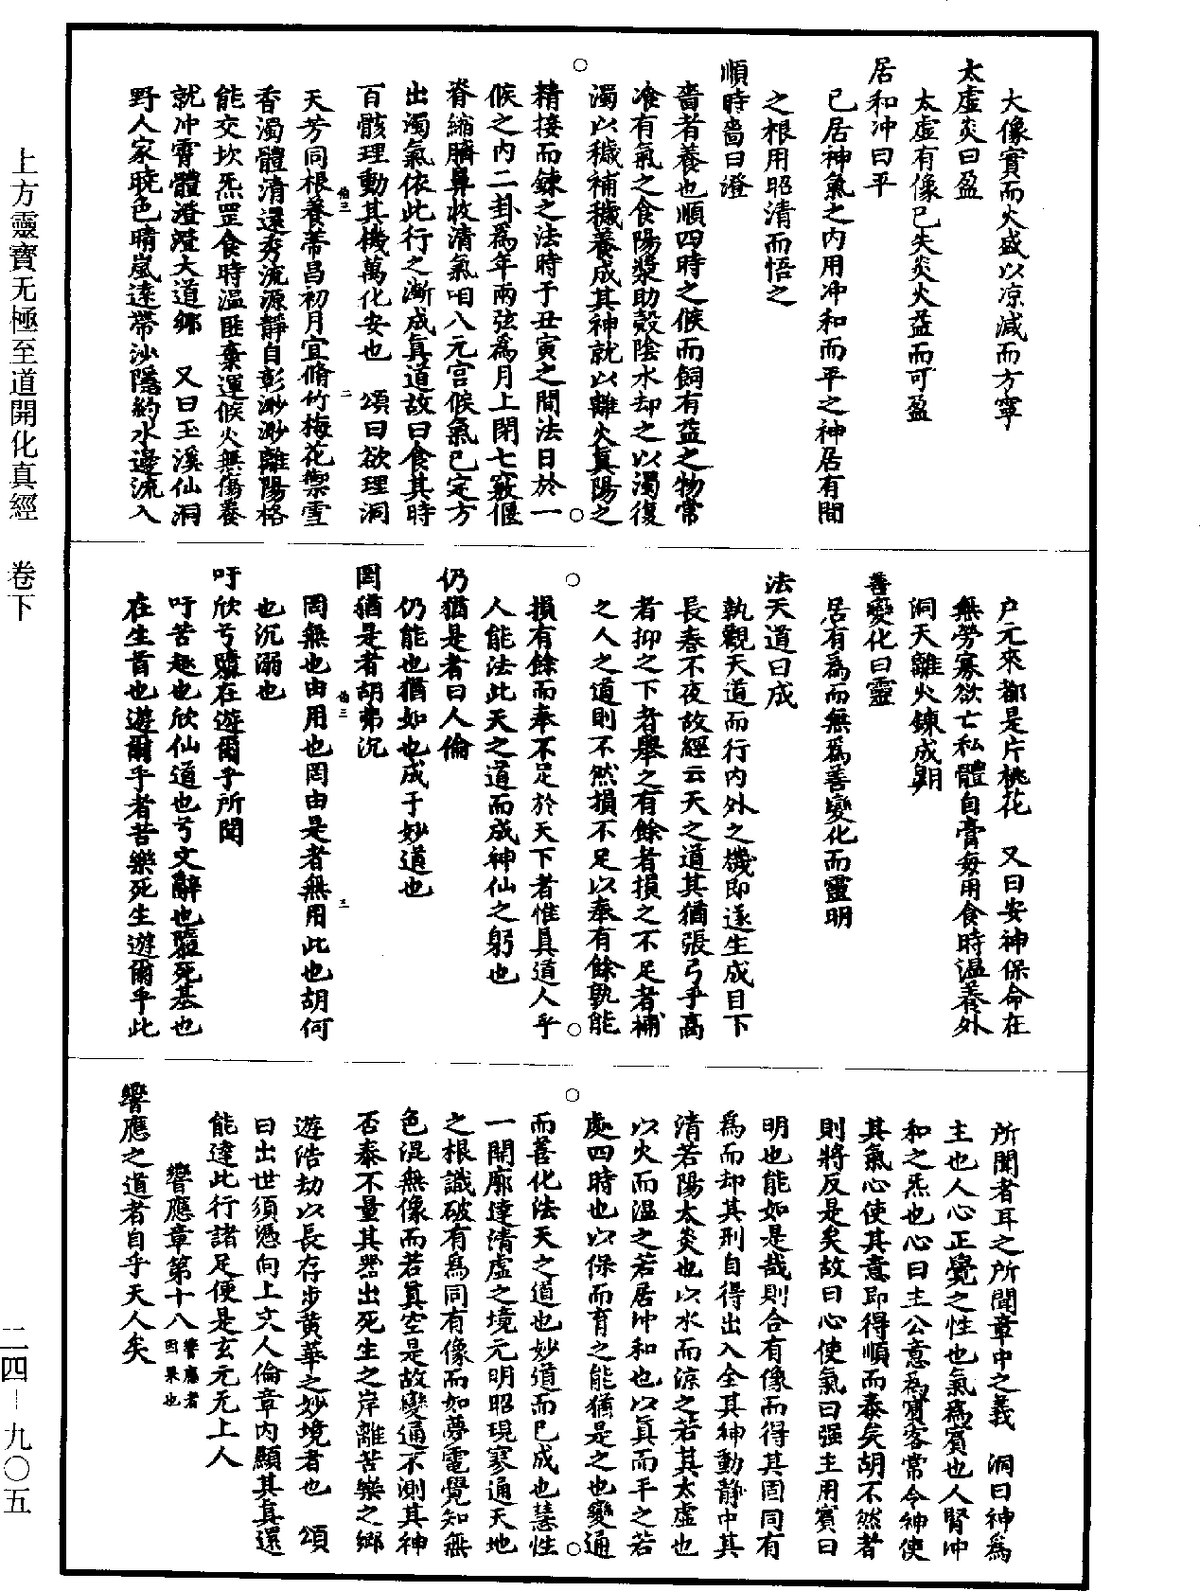 大像實而火盛以凉減而方寧
太虛炎曰盈
太虛有像已失炎火益而可盈
居和冲曰平
已居神氣之内用冲和而平之神居有間
之根用昭清而悟之
順時嗇曰澄
嗇者養也順四時之候而飼有益之物常
飡有氣之食陽漿助殼陰水却之以濁復
濁以穢補穢養成其神就以離火真陽之
精接而鍊之法時于丑寅之間法日於一
候之内二卦爲年兩弦爲月上閉七竅偃
脊縮臍鼻收清氣咱八元宫候氣已定方
出濁氣依此行之漸成真道故曰食其時
百骸理動其機萬化安也　頌曰欲理洞
天芳同根養蒂昌初月宜脩竹梅花禦雪
香濁體清還秀流源靜自彰渺渺離陽格
能交坎炁罡食時溫匪棄運候火無傷養
就冲霄體澄澄大道鄉　又曰玉溪仙洞
野人家曉色晴嵐遠帶沙隱約水邊流入
户元來都是片桃花　又曰安神保命在
無勞寡欲亡私體自膏每用食時温養外
洞天離火鍊成朙
善變化曰靈
居有爲而無爲善變化而靈明
法天道曰成
執觀天道而行内外之機即遂生成目下
長春不夜故經云天之道其猶張弓乎高
者抑之下者舉之有餘者損之不足者補
之人之道則不然損不足以奉有餘孰能
損有餘而奉不足於天下者惟具道人乎
人能法此天之道而成神仙之躬也
仍猶是者曰人倫
仍能也猶如也成于妙道也
罔猶是者胡弗沉
罔無也由用也罔由是者無用此也胡何
也沉溺也
吁欣兮驢在遊爾乎所聞
吁苦趣也欣仙道也兮文辭也驢死基也
在生首也遊爾乎者苦樂死生遊爾乎此
所聞者耳之所聞章中之義　洞曰神爲
主也人心正覺之性也氣爲賓也人腎冲
和之炁也心曰主公意爲賓客常令神使
其氣心使其意即得順而泰矣胡不然者
則將反是矣故曰心使氣曰强主用賓曰
明也能如是哉則合有像而得其固同有
爲而却其刑自得出入全其神動靜中其
清若陽太炎也以水而涼之若其太虛也
以火而溫之若居冲和也以真而平之若
處四時也以保而育之能猶是之也變通
而善化法天之道也妙道而已成也慧性
一開廓達清虛之境元明昭現寥通天地
之根識破有爲同有像而如夢電覺知無
色混無像而若真空是故變通不測其神
否泰不量其器出死生之岸離苦樂之鄉
遊浩劫以長存步黄華之妙境者也　頌
曰出世須憑向上文人倫章内顯其真還
能達此行諸足便是玄元无上人
響應章第十八響應者因果也
響應之道者自乎天人矣
上方靈寶无極至道開化真經　卷下
二四－九〇五